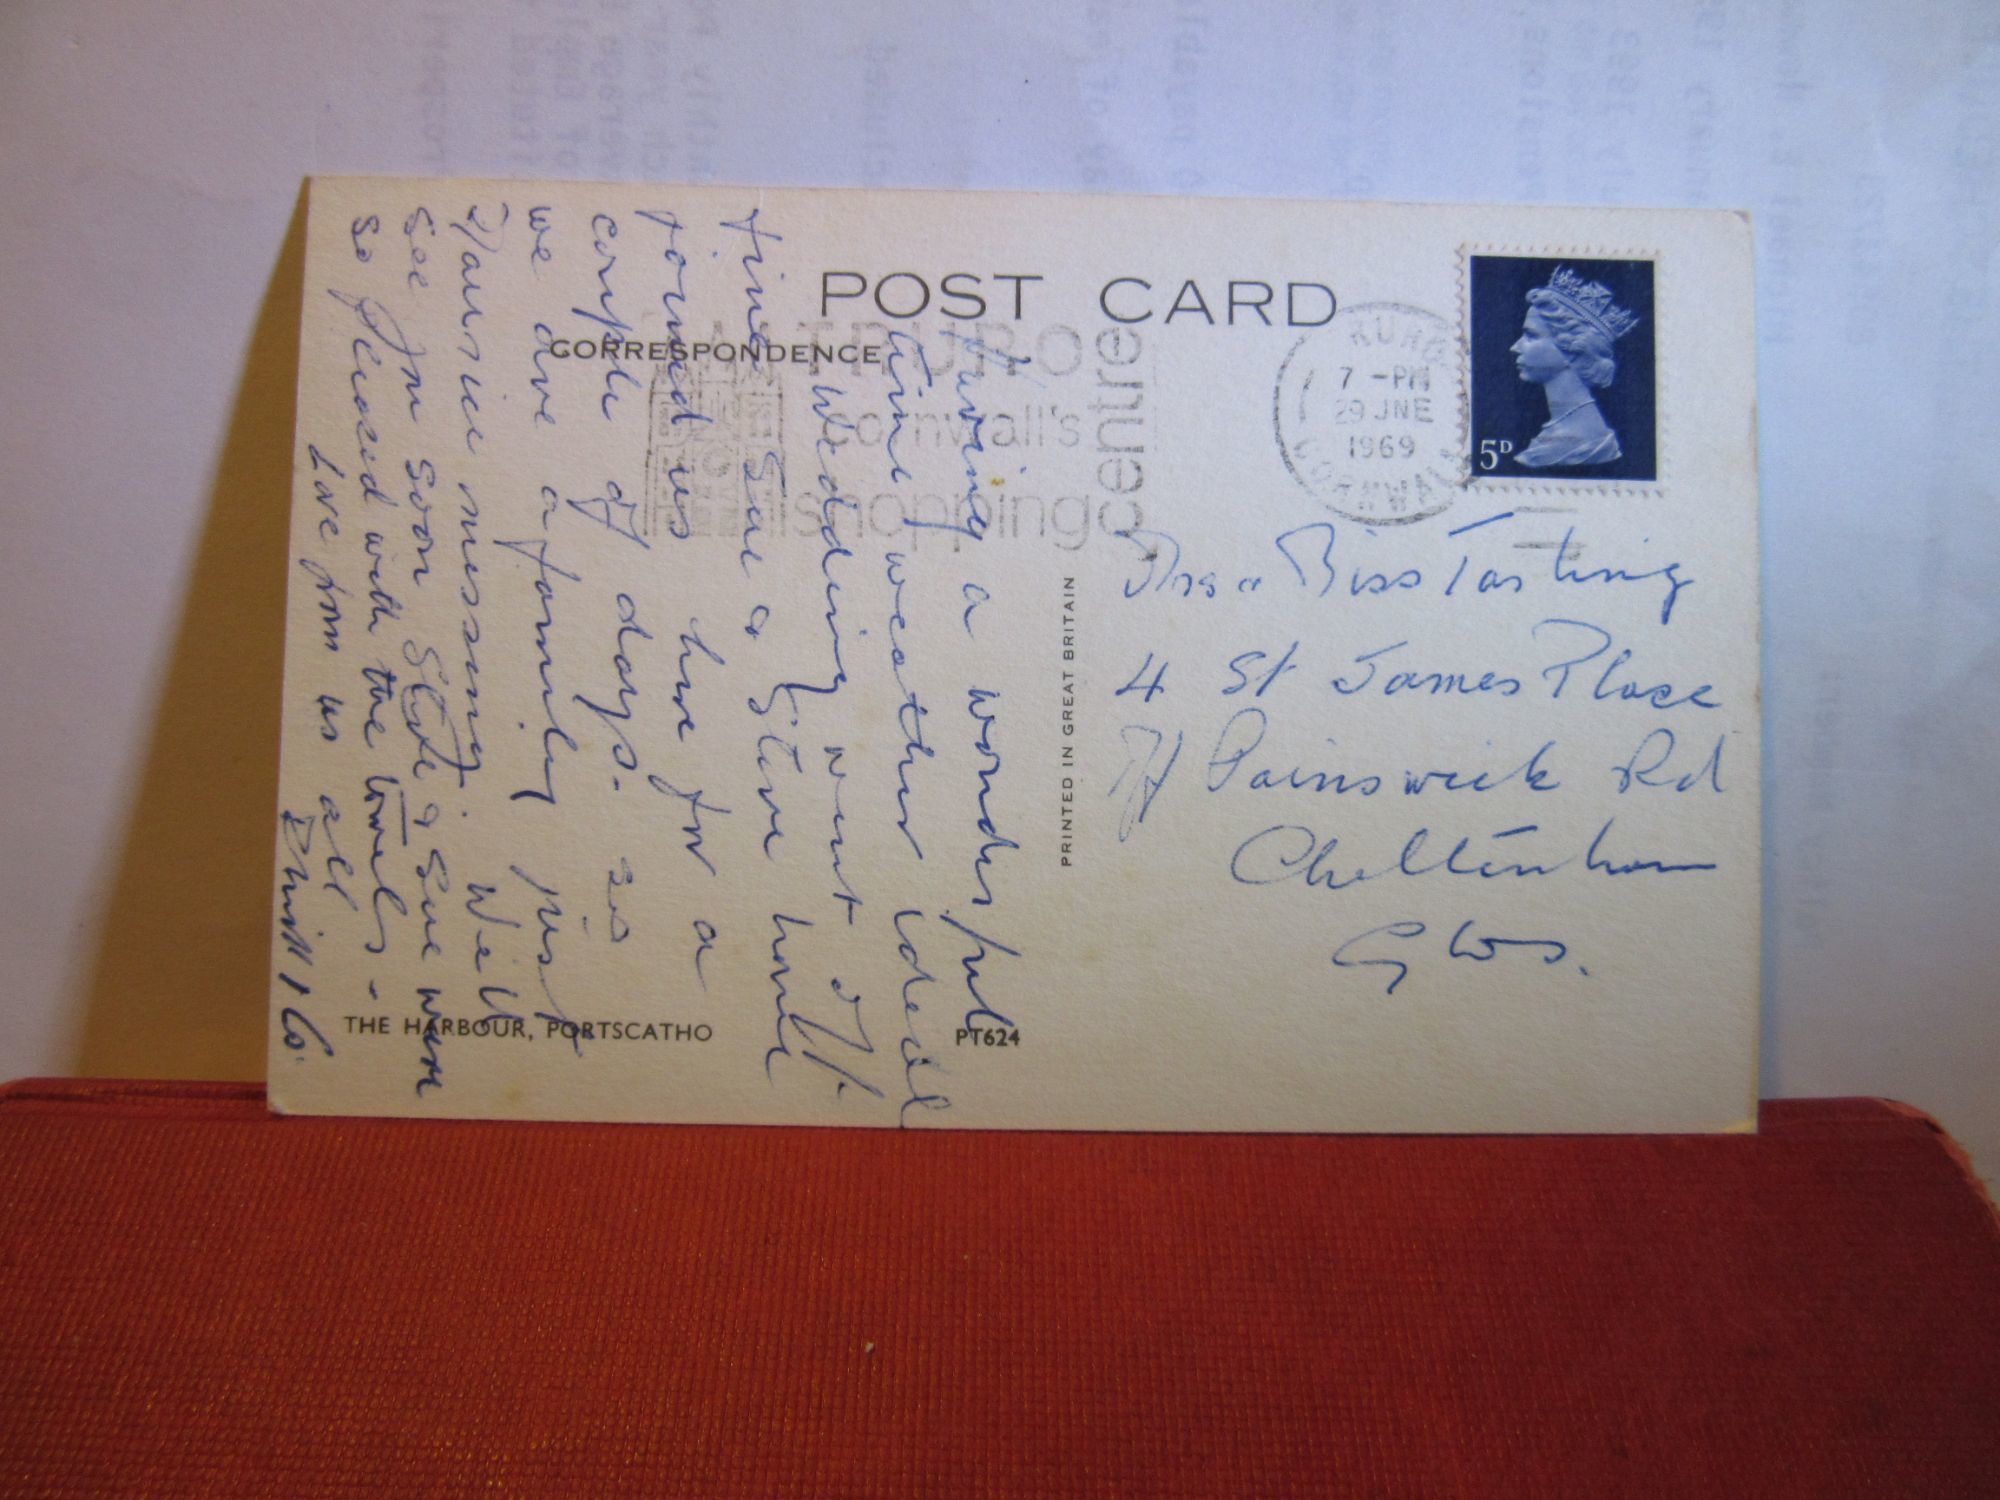 POST CARD
CORRESPONDENCE
TRURO
cornwall's
shopping
centre
TRURO
7 - PM
29 JNE
1969
CORNWALL
5D
Having a wonderful
time weather ideal
Wedding went off
fine Sue & Steve have
joined us here for a
couple of days. so
we are a family just
Maurice missing. Will
see you soon Steve & Sue were
so pleased with the towels -
Love from us all
& Co.
Mrs & Miss Tarling
4 St James Place
Off Painswick Rd
Cheltenham
Glos.
PRINTED IN GREAT BRITAIN
THE HARBOUR, PORTSCATHO
PT624